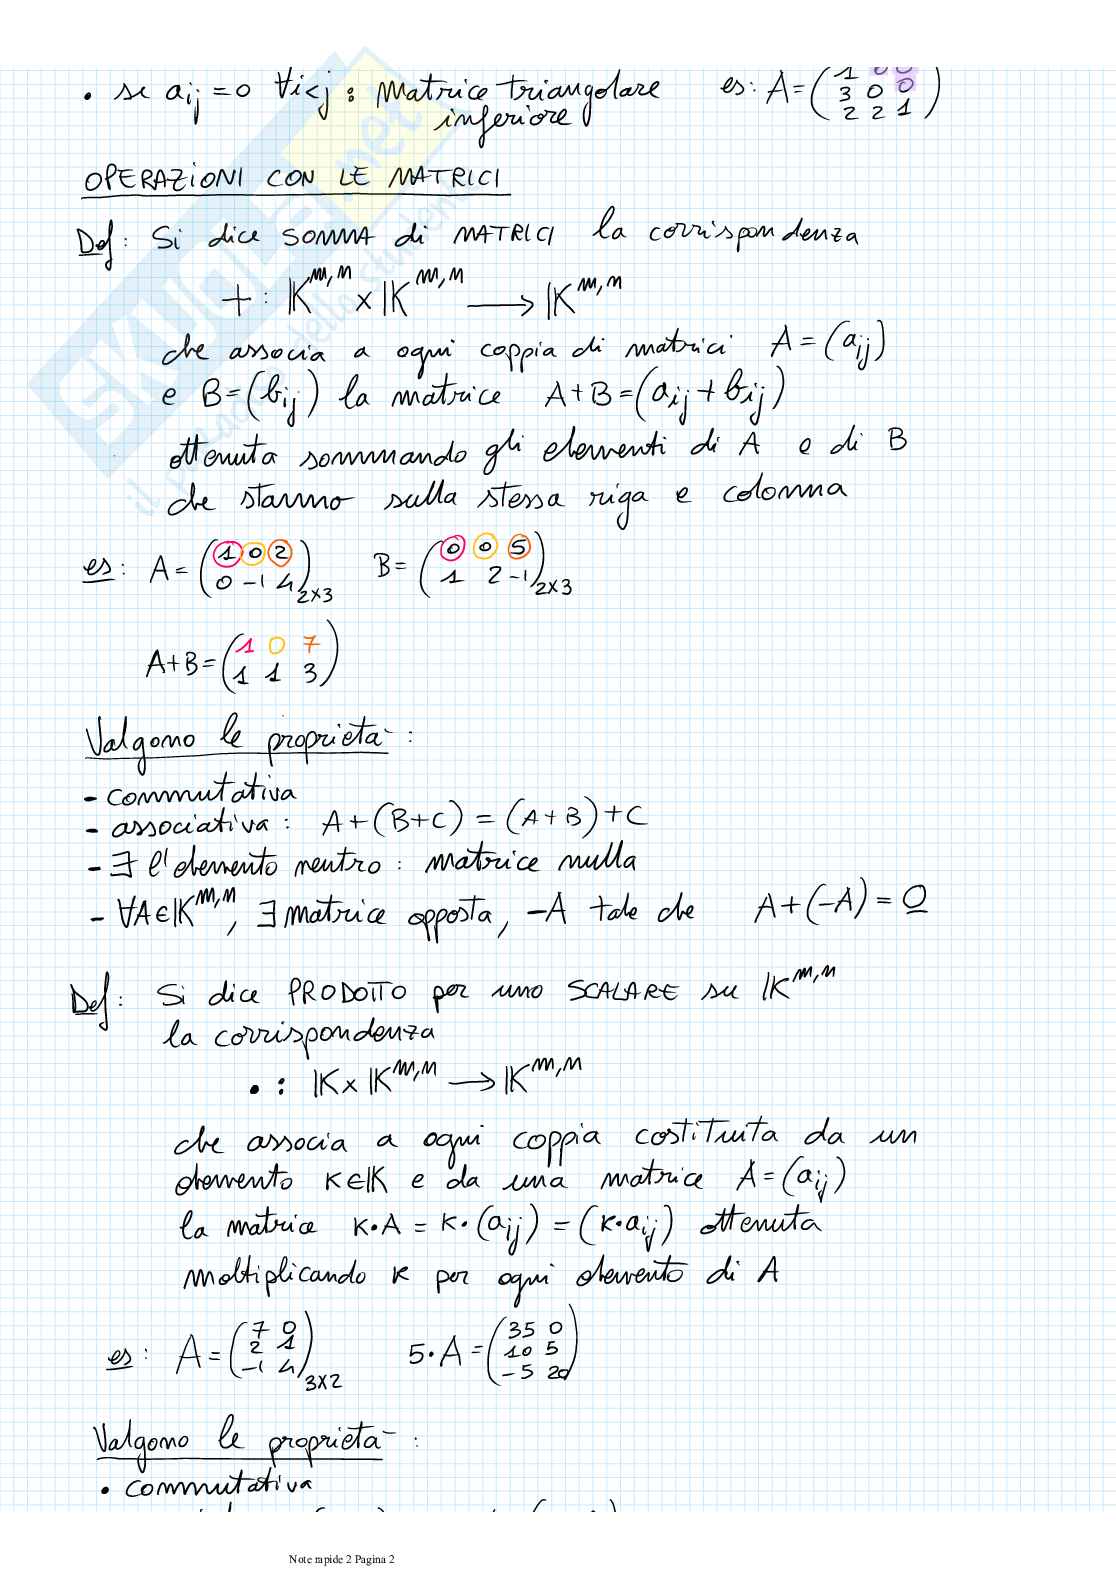 • se aij = 0 ∀i<j : Matrice triangolare inferiore es: A = (1 0 0
3 0 0
2 2 1)
OPERAZIONI CON LE MATRICI
Def: Si dice SOMMA di MATRICI la corrispondenza
+ : K^m,n × K^m,n → K^m,n
che associa a ogni coppia di matrici A = (aij)
e B = (bij) la matrice A+B = (aij + bij)
ottenuta sommando gli elementi di A e di B
che stanno sulla stessa riga e colonna
es: A = (1 0 2
0 -1 4)2x3 B = (0 0 5
1 2 -1)2x3
A+B = (1 0 7
1 1 3)
Valgono le proprietà:
- commutativa
- associativa: A+(B+C) = (A+B)+C
- ∃ l'elemento neutro: matrice nulla
- ∀A∈K^m,n, ∃ matrice opposta, -A tale che A+(-A) = 0
Def: Si dice PRODOTTO per uno SCALARE su K^m,n
la corrispondenza
• : K × K^m,n → K^m,n
che associa a ogni coppia costituita da un
elemento K∈K e da una matrice A = (aij)
la matrice K•A = K•(aij) = (K•aij) ottenuta
moltiplicando K per ogni elemento di A
es: A = (7 0
2 1
-1 4)3x2 5•A = (35 0
10 5
-5 20)
Valgono le proprietà:
• commutativa
Note rapide 2 Pagina 2
SKUOLA.net